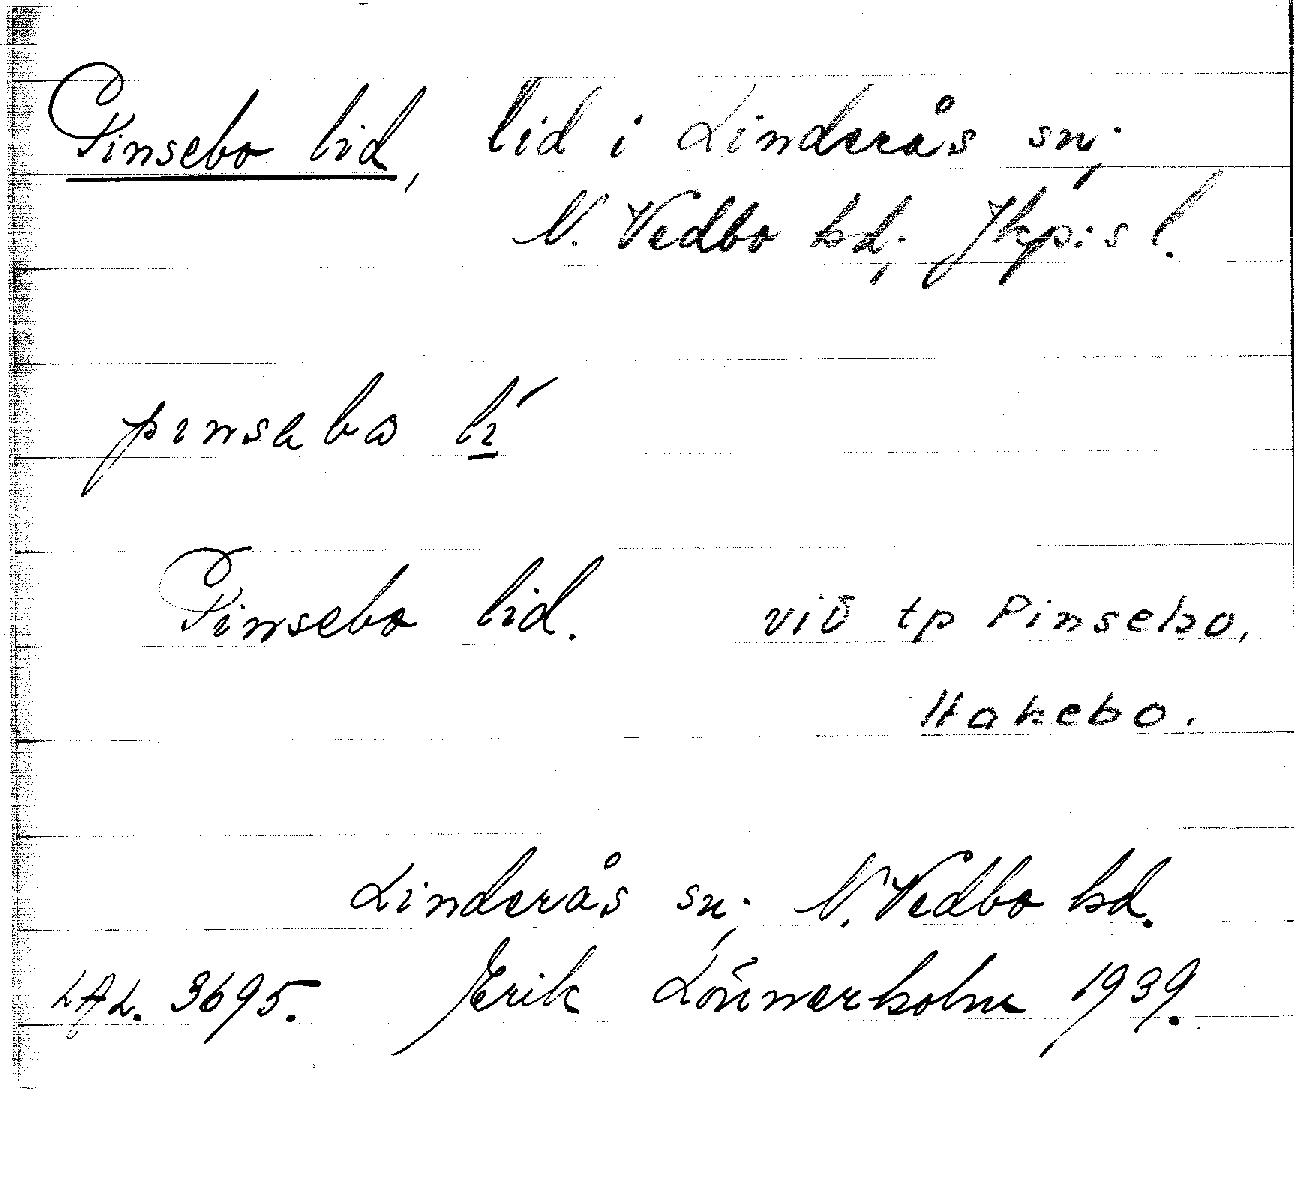 Pinsebo lid, lid i Linderås sn;
N. Vedbo hd; Jkp:s l.
pinsabo li
Pinsebo lid. vid tp Pinsebo,
Hakebo.
Linderås sn; N. Vedbo hd.
LAL. 3695. Erik Lönnerholm 1939.